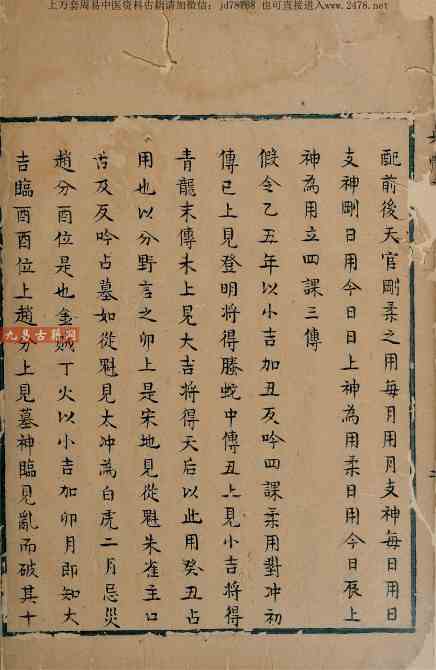 上万套周易中医资料古籍请加微信：jd78768 也可直接进入www.2478.net
配前後天官剛柔之用每月用月支神每日用日
支神剛日用今日日上神為用柔日用今日辰上
神為用立四課三傳
假令乙丑年以小吉加丑反吟四課柔用對冲初
傳巳上見登明將得螣蛇中傳丑上見小吉將得
青龍末傳未上見大吉將得天后以此用癸丑占
用也以分野言之卯上是宋地見從魁朱雀主口
舌及反吟占墓如從魁見太冲為白虎二月忌災
趙分酉位是也金賊丁火以小吉加卯月即知大
吉臨酉酉位上趙分上見墓神臨見亂而破其十
九易古籍網